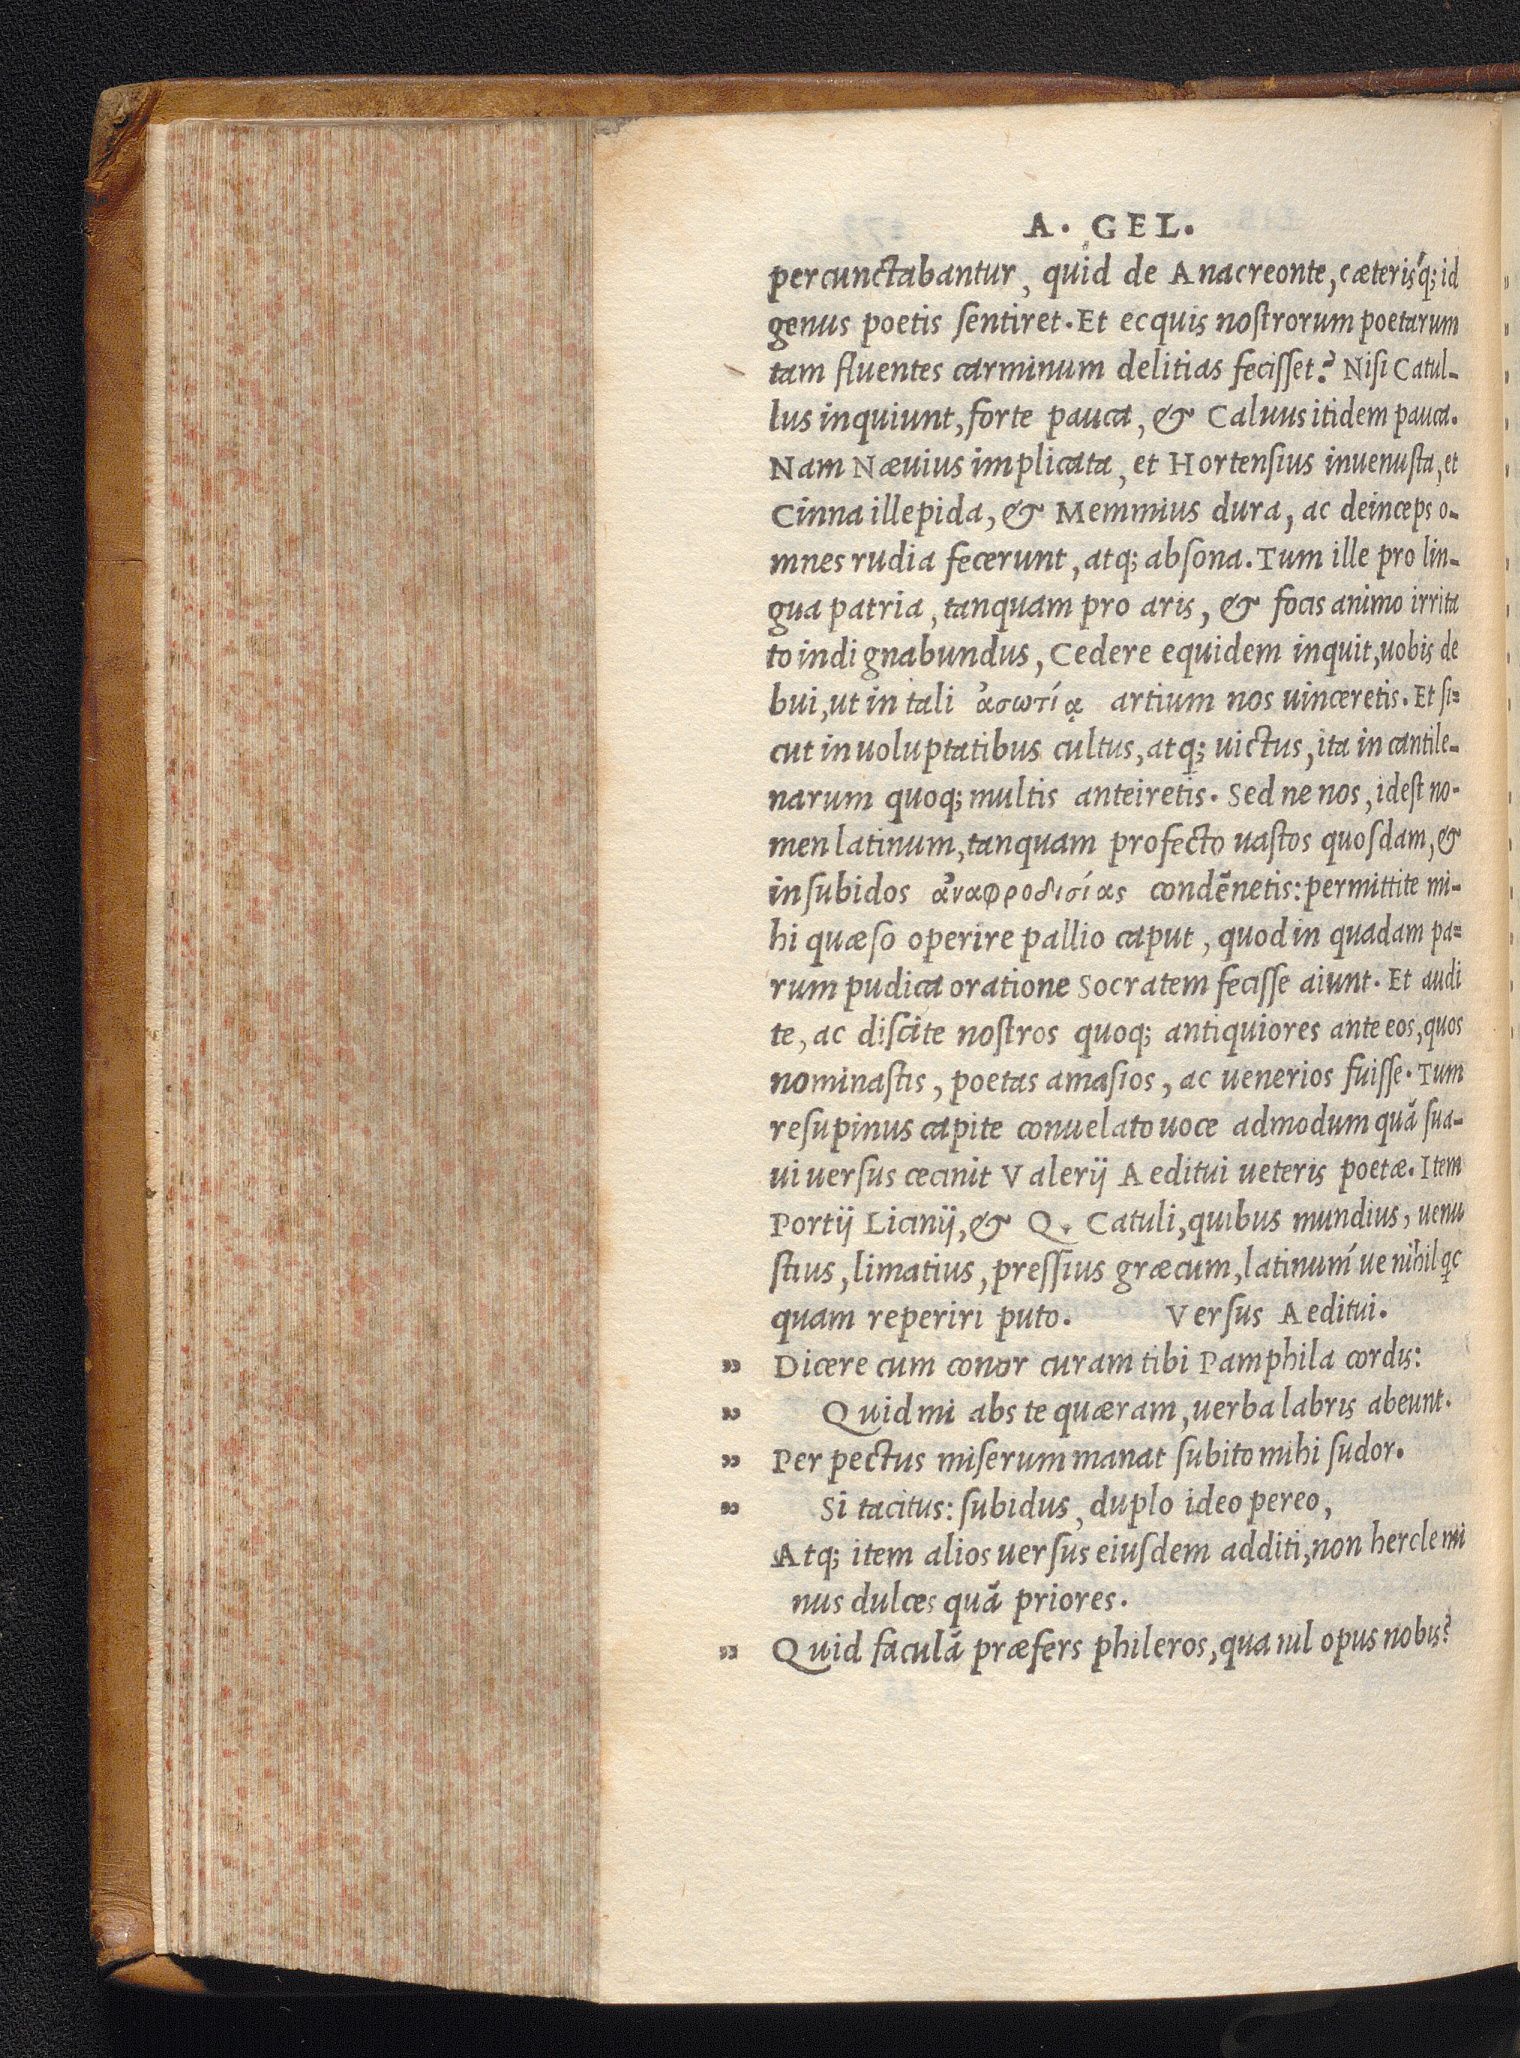 A. GEL.
percunctabantur, quid de Anacreonte, cæteris'q; id
genus poetis sentiret. Et ecquis nostrorum poetarum
tam fluentes carminum delitias fecisset? Nisi Catul-
lus inquiunt, forte pauca, & Caluus itidem pauca.
Nam Næuius implicata, et Hortensius inuenusta, et
Cinna illepida, & Memmius dura, ac deinceps o-
mnes rudia fecerunt, atq; absona. Tum ille pro lin-
gua patria, tanquam pro aris, & focis animo irrita
to indignabundus, Cedere equidem inquit, uobis de
bui, ut in tali ἀσωτίᾳ artium nos uinceretis. Et si=
cut in uoluptatibus cultus, atq; uictus, ita in cantile-
narum quoq; multis anteiretis. Sed ne nos, idest no-
men latinum, tanquam profecto uastos quosdam, &
insubidos ἀναφροδισίας condēnetis: permittite mi-
hi quæso operire pallio caput, quod in quadam pa=
rum pudica oratione Socratem fecisse aiunt. Et audi
te, ac discite nostros quoq; antiquiores ante eos, quos
nominastis, poetas amasios, ac uenerios fuisse. Tum
resupinus capite conuelato uoce admodum quā sua-
ui uersus cecinit Valerij Aeditui ueteris poetæ. Item
Portij Licinij, & Q. Catuli, quibus mundius, uenu
stius, limatius, pressius græcum, latinum´ue nihil
quam reperiri puto. Versus Aeditui.
" Dicere cum conor curam tibi Pamphila cordis:
" Quid mi abs te quæram, uerba labris abeunt.
" Per pectus miserum manat subito mihi sudor.
" Si tacitus: subidus, duplo ideo pereo,
Atq; item alios uersus eiusdem additi, non hercle mi
nus dulces quā priores.
" Quid faculā præfers phileros, qua nil opus nobis?